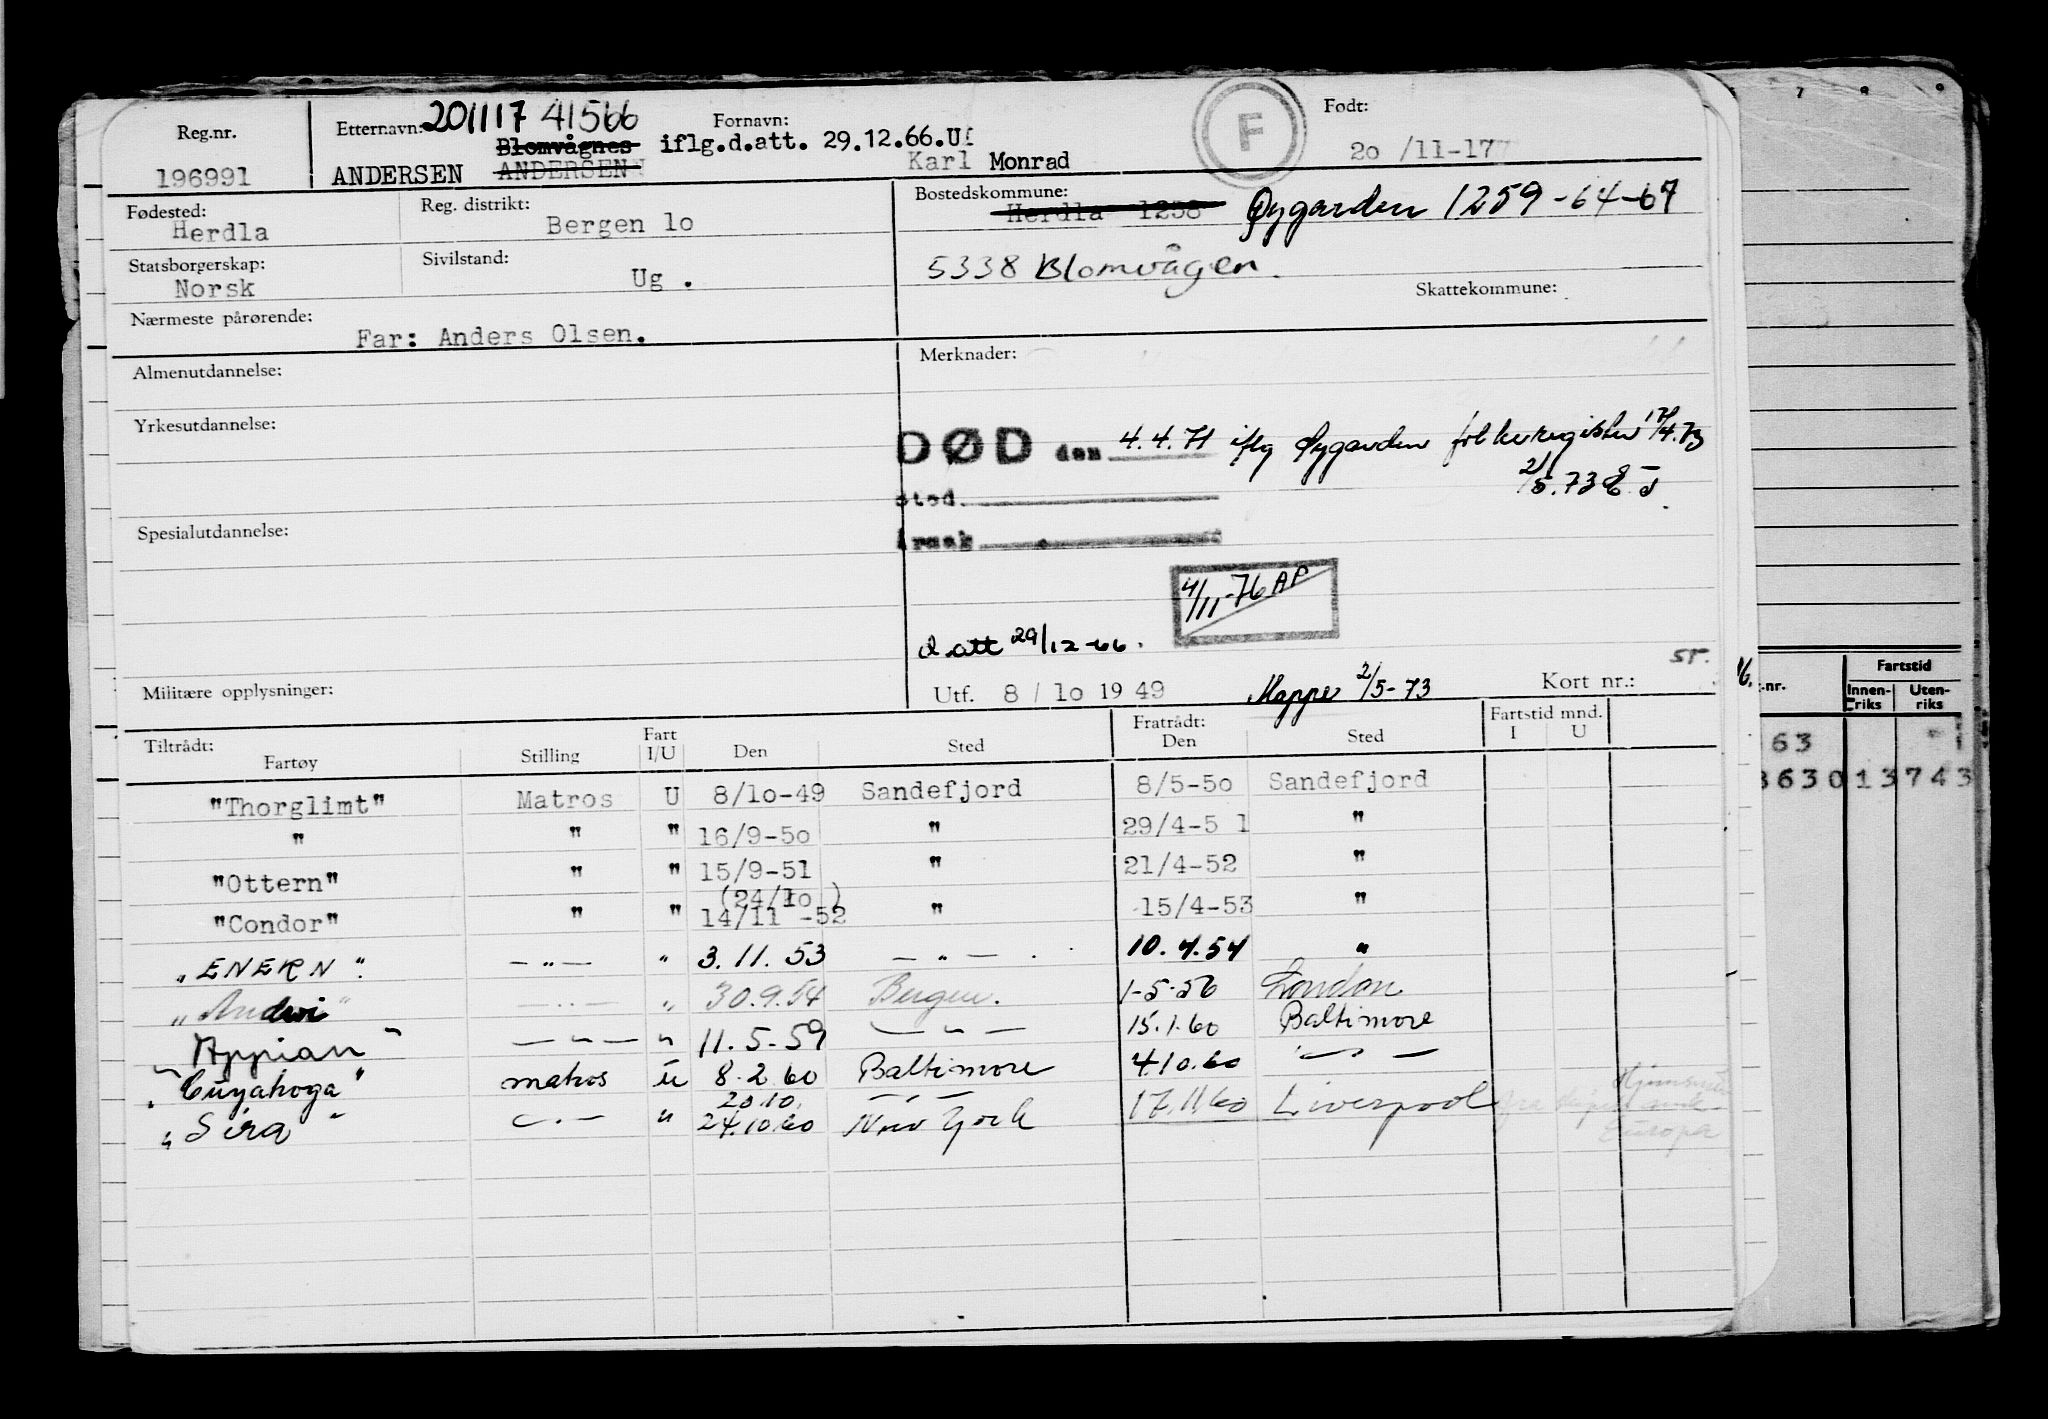 Reg.nr. Etternavn: 201117 41566 Fornavn: F Født:
Blomvågnes iflg.d.att. 29.12.66.
196991 ANDERSEN ANDERSEN Karl Monrad 2o /11-17
Fødested: Herdla Reg. distrikt: Bergen lo Bostedskommune: Herdla 1258 Øygarden 1259-64-67
Statsborgerskap: Norsk Sivilstand: Ug . 5338 Blomvågen.
Skattekommune:
Nærmeste pårørende: Far: Anders Olsen.
Almenutdannelse: Merknader:
Yrkesutdannelse:
DØD den 4.4.71 iflg Øygarden folkeregister 17/4.73
2/5.73
sted
årsak
Spesialutdannelse:
4/11-76 AP
d att 29/12-66.
Militære opplysninger: Utf. 8 / lo 19 49 Mappe 2/5-73 Kort nr.:
Tiltrådt: Fartøy Stilling Fart I/U Den Sted Fratrådt: Den Sted Fartstid mnd. I U
"Thorglimt" Matros U 8/lo-49 Sandefjord 8/5-5o Sandefjord
" " " 16/9-5o " 29/4-5 1 "
"Ottern" " " 15/9-51 " 21/4-52 "
(24/lo )
"Condor" " " 14/11 -52 " 15/4-53 "
"ENERN". — " — " 3.11.53 — " — . 10.4.54 "
"Andwi" — " — " 30.9.54 Bergen. 1-5-56 London
"Appian" — " — " 11.5-59 — " — 15.1.60 Baltimore
"Cuyahoga" matros u 8.2.60 Baltimore 4.10.60 — " —
20.10.
"Sira" — " — " 24.10.60 New York 17.11.60 Liverpool
Europa
7 8 9
-nr. Fartstid
Innen-riks Uten-riks
63 1
8630 13 743